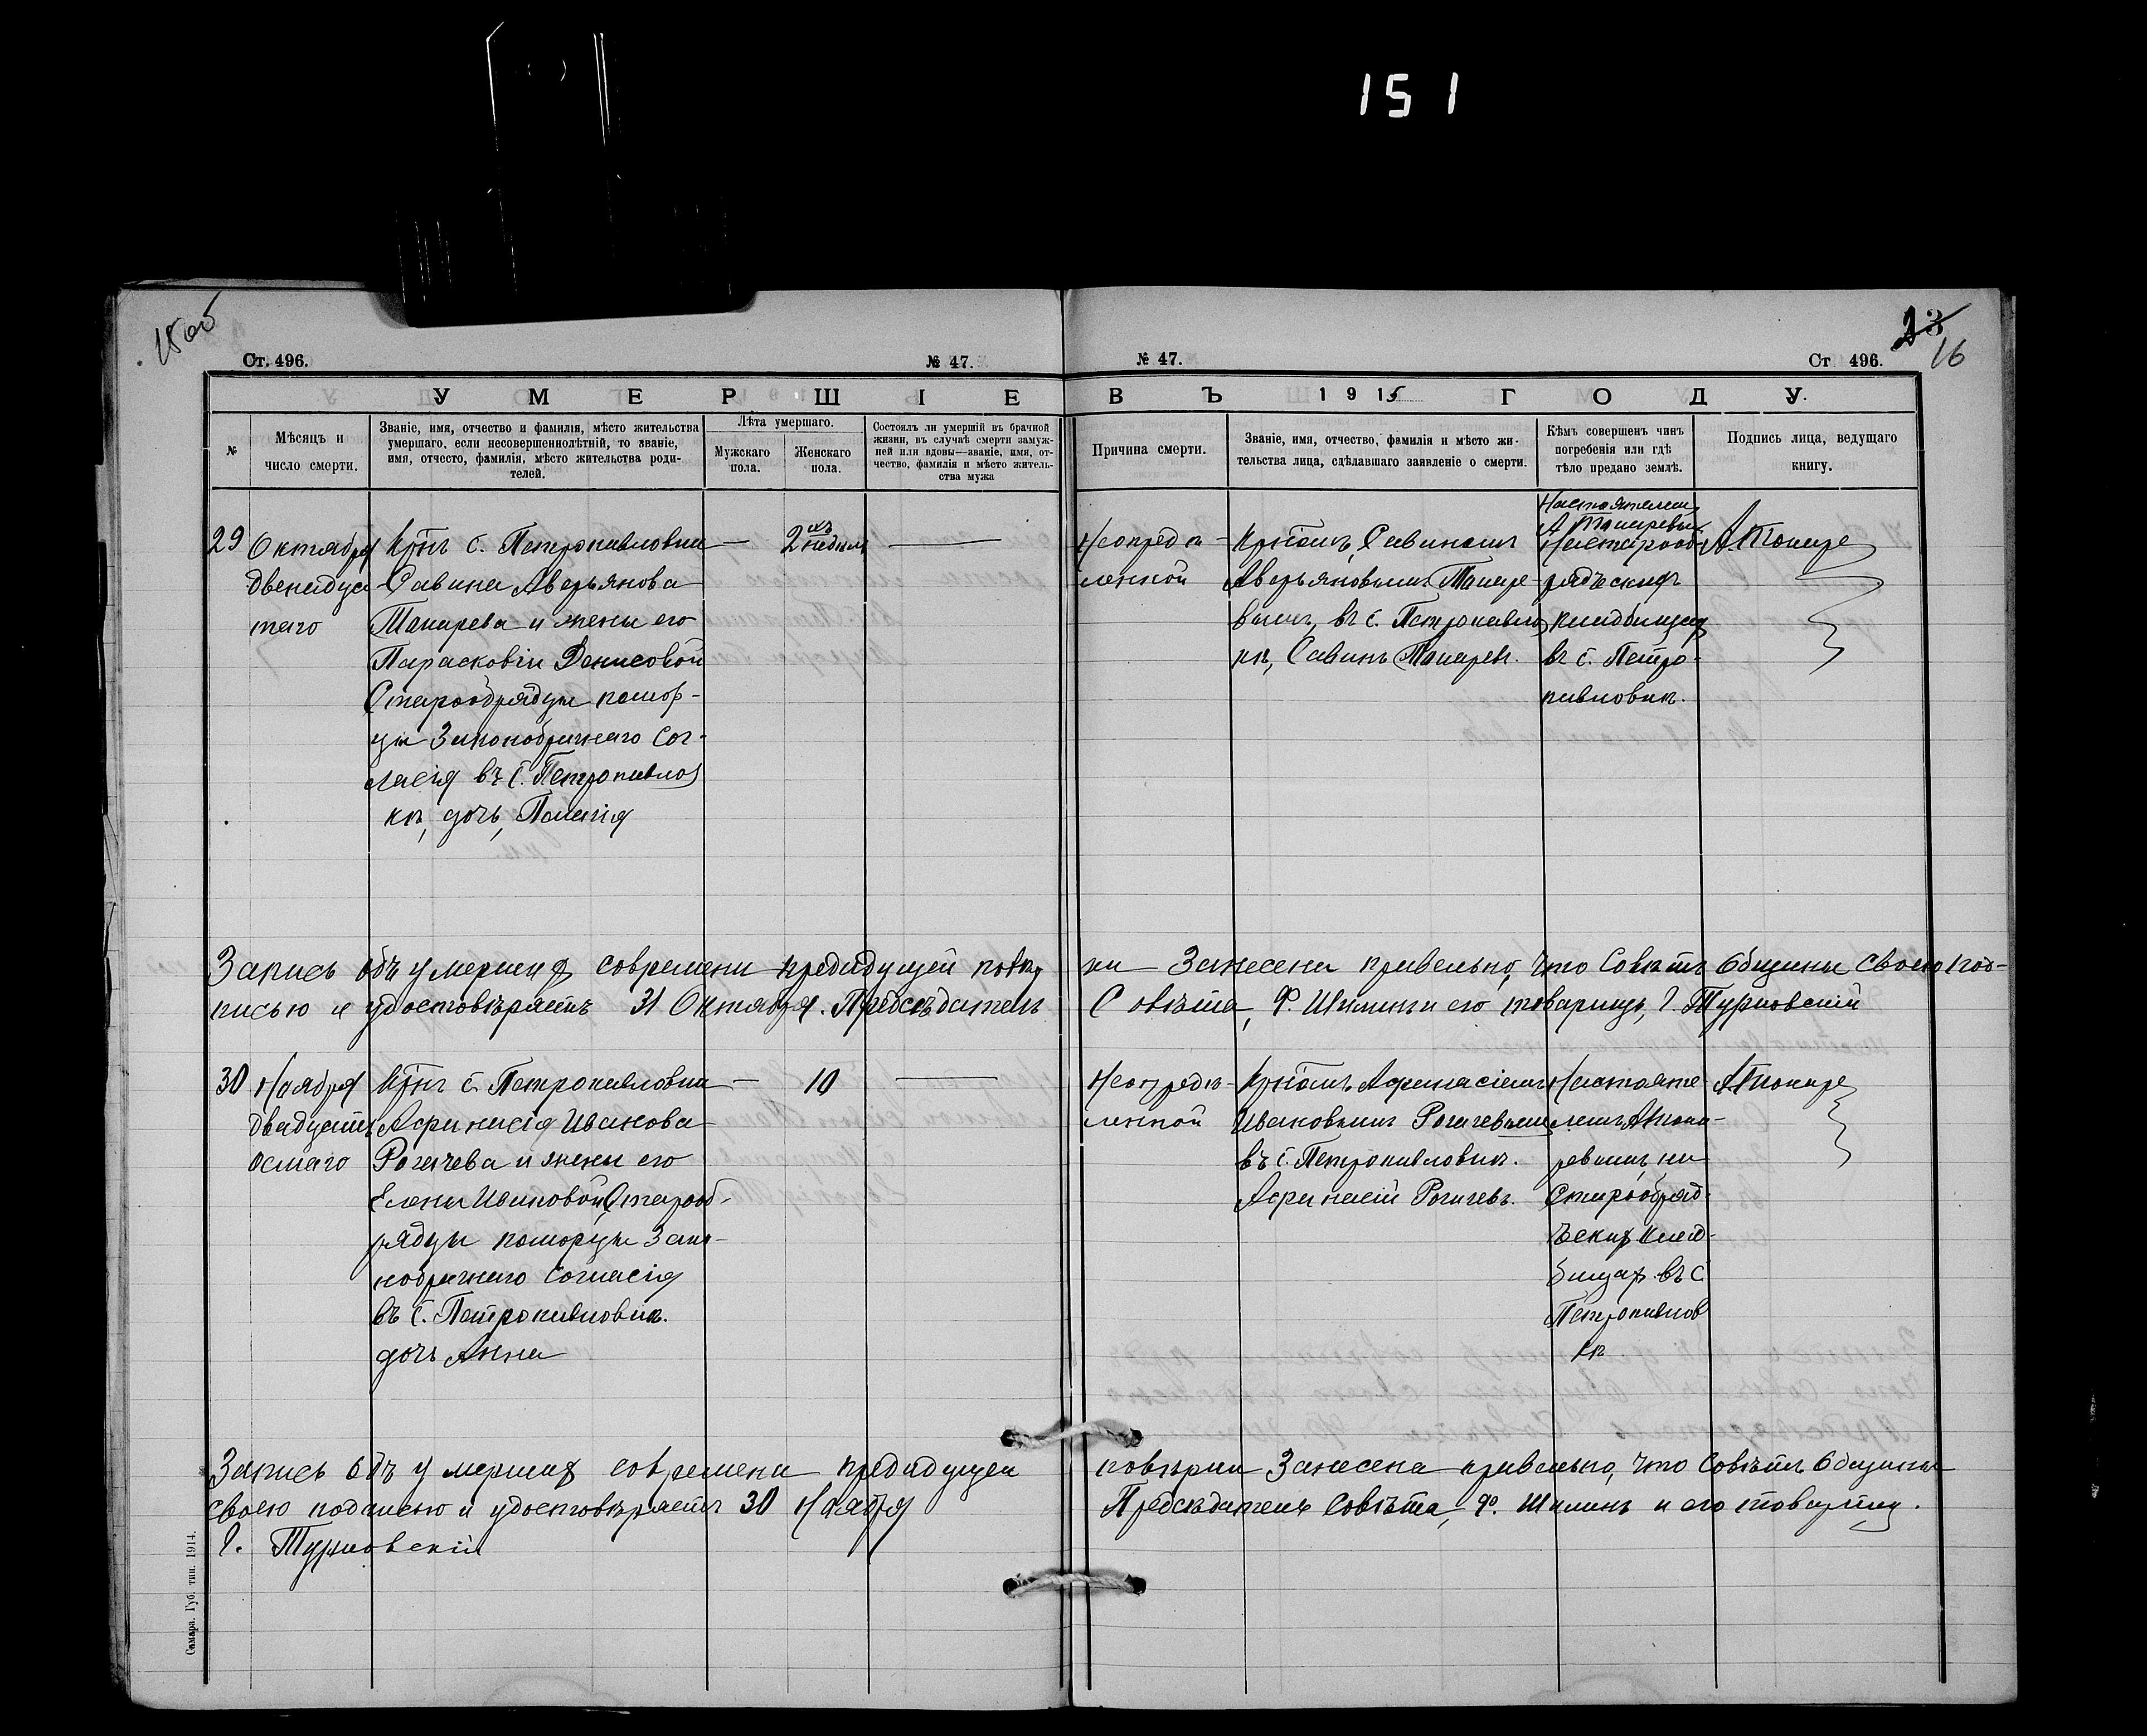 151
15 об
Ст. 496.
№ 47.
№ 47.
Ст. 496.
13
16
УМЕРШІЕ
ВЪ 1915 ГОДУ.
№
Мѣсяцъ и
число смерти.
Званіе, имя, отчество и фамилія, мѣсто жительства
умершаго, если несовершеннолѣтній, то званіе,
имя, отчесто, фамилія, мѣсто жительства роди-
телей.
Лѣта умершаго.
Мужскаго
пола.
Женскаго
пола.
Состоялъ ли умершій въ брачной
жизни, въ случаѣ смерти замуж-
ней или вдовы—званіе, имя, от-
чество, фамилія и мѣсто житель-
ства мужа
Причина смерти.
Званіе, имя, отчество, фамилія и мѣсто жи-
тельства лица, сдѣлавшаго заявленіе о смерти.
Кѣмъ совершенъ чинъ
погребенія или гдѣ
тѣло предано землѣ.
Подпись лица, ведущаго
книгу.
29
Октября
двенадца
таго
Крнъ с. Петропавловки
Савина Аверьянова
Токарева и жены его
Парасковіи Денисовой
Старообрядцы помор-
цы Законобрачнаго Сог-
ласія въ с. Петропавлов
кѣ, дочь, Пелагія
—
2 хъ недѣль
—
Неопредѣ-
ленной
Крніомъ, Савиномъ
Аверьяновымъ Токаре
вымъ, въ с. Петропавлов
кѣ, Савинъ Токаревъ.
Настоятелемъ
А Токаревым
На старооб
рядческихъ
кладбищах
въ с. Петро-
павловкѣ.
А. Токаре
Запись объ умершихъ современи предидущей повѣр
ки Занесена правельно, что Совѣтъ Общины своею под-
писью и удостовѣряетъ 31 Октября. Предсѣдатель
Совѣта, Ф. Шилинъ и его товарищъ, Г. Турновскій
30
Ноября
двадцать
осмаго
Крнъ с. Петропавловки
Афанасія Иванова
Рогачева и жены его
Елены Ивановой Старооб-
рядцы поморцы Зако-
нобрачнаго Согласія
въ с. Петропавловкѣ.
дочь Анна
—
10
—
Неопредѣ-
ленной
Крніомъ Афанасіемъ
Ивановымъ Рогачевым
въ с. Петропавловкѣ.
Афанасій Рогачевъ.
Настояте
лемъ А Тока-
ревымъ, на
Старообряд-
ческих клад-
бищах въ с.
Петропавлов
кѣ
А Токаре
Запись объ умерших современи предидущей
повѣрки Занесена правельно, что Совѣтъ Общины
Своею подписью и удостовѣряетъ 30 Ноября
Предсѣдатель Совѣта, Ф. Шилинъ и его товарищ.
Г. Турновскій
Самара. Губ. тип. 1914.